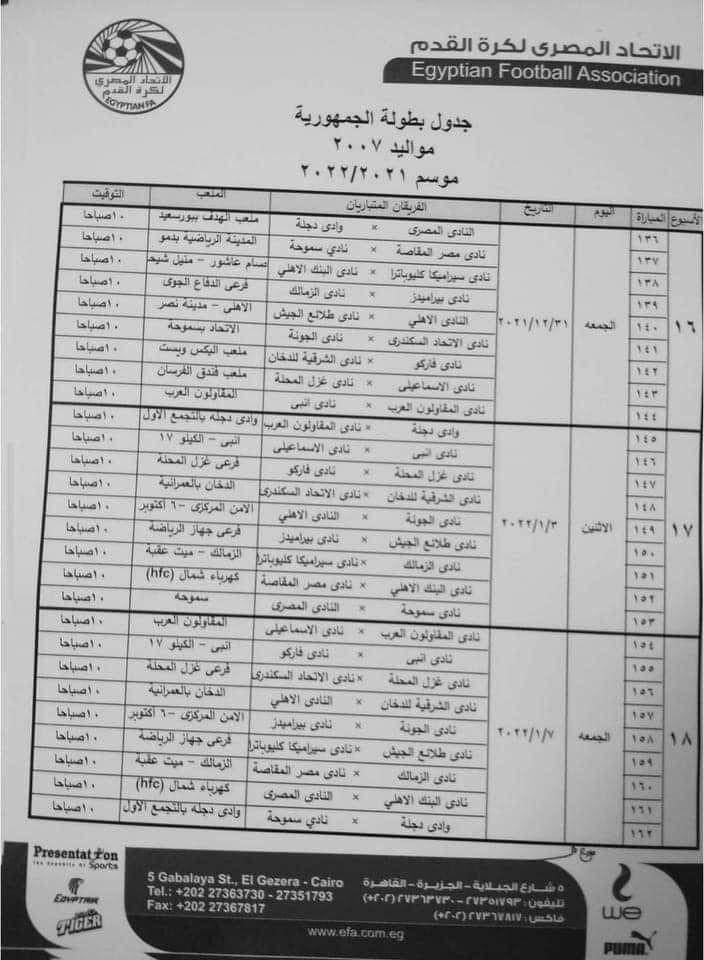 الاتحاد المصرى لكرة القدم
Egyptian Football Association
الاتحاد المصرى
لكرة القدم
EGYPTIAN FA
جدول بطولة الجمهورية
مواليد ٢٠٠٧
موسم ٢٠٢٢/٢٠٢١
الأسبوع المباراة اليوم التاريخ الفريقان المتباريان الملعب التوقيت
١٦ الجمعه ٢٠٢١/١٢/٣١
١٣٦ النادى المصرى × وادى دجلة ملعب الهدف ببورسعيد ١٠صباحا
١٣٧ نادى مصر المقاصة × نادي سموحة المدينة الرياضية بدمو ١٠صباحا
١٣٨ نادى سيراميكا كليوباترا × نادى البنك الاهلي عصام عاشور - منيل شيحه ١٠صباحا
١٣٩ نادى بيراميدز × نادى الزمالك فرعى الدفاع الجوى ١٠صباحا
١٤٠ النادى الاهلي × نادى طلائع الجيش الاهلى - مدينة نصر ١٠صباحا
١٤١ نادى الاتحاد السكندرى × نادى الجونة الاتحاد بسموحة ١٠صباحا
١٤٢ نادى فاركو × نادى الشرقية للدخان ملعب اليكس ويست ١٠صباحا
١٤٣ نادى الاسماعيلى × نادى غزل المحلة ملعب فندق الفرسان ١٠صباحا
١٤٤ نادى المقاولون العرب × نادى انبى المقاولون العرب ١٠صباحا
١٧ الاثنين ٢٠٢٢/١/٣
١٤٥ وادى دجلة × نادى المقاولون العرب وادى دجله بالتجمع الأول ١٠صباحا
١٤٦ نادى انبى × نادى الاسماعيلى انبى - الكيلو ١٧ ١٠صباحا
١٤٧ نادى غزل المحلة × نادى فاركو فرعى غزل المحلة ١٠صباحا
١٤٨ نادى الشرقية للدخان × نادى الاتحاد السكندرى الدخان بالعمرانية ١٠صباحا
١٤٩ نادى الجونة × النادى الاهلي الامن المركزى -٦ أكتوبر ١٠صباحا
١٥٠ نادى طلائع الجيش × نادى بيراميدز فرعى جهاز الرياضة ١٠صباحا
١٥١ نادى الزمالك × نادى سيراميكا كليوباترا الزمالك - ميت عقبة ١٠صباحا
١٥٢ نادى البنك الاهلي × نادى مصر المقاصة كهرباء شمال (hfc) ١٠صباحا
١٥٣ نادي سموحة × النادى المصرى سموحه ١٠صباحا
١٨ الجمعه ٢٠٢٢/١/٧
١٥٤ نادى المقاولون العرب × نادى الاسماعيلى المقاولون العرب ١٠صباحا
١٥٥ نادى انبى × نادى فاركو انبى - الكيلو ١٧ ١٠صباحا
١٥٦ نادى غزل المحلة × نادى الاتحاد السكندرى فرعى غزل المحلة ١٠صباحا
١٥٧ نادى الشرقية للدخان × النادى الاهلي الدخان بالعمرانية ١٠صباحا
١٥٨ نادى الجونة × نادى بيراميدز الامن المركزى -٦ أكتوبر ١٠صباحا
١٥٩ نادى طلائع الجيش × نادى سيراميكا كليوباترا فرعى جهاز الرياضة ١٠صباحا
١٦٠ نادى الزمالك × نادى مصر المقاصة الزمالك - ميت عقبة ١٠صباحا
١٦١ نادى البنك الاهلي × النادى المصرى كهرباء شمال (hfc) ١٠صباحا
١٦٢ وادى دجلة × نادي سموحة وادى دجله بالتجمع الأول ١٠صباحا
Presentation
Sports
EGYPTAIR
TIGER
5 Gabalaya St., El Gezera - Cairo
Tel.: +202 27363730 - 27351793
Fax: +202 27367817
٥ شارع الجبلاية - الجزيرة - القاهرة
تليفون: ٢٧٣٥١٧٩٣ - ٢٧٣٦٣٧٣٠ (٢٠٢+)
فاكس: ٢٧٣٦٧٨١٧ (٢٠٢+)
www.efa.com.eg
we
PUMA